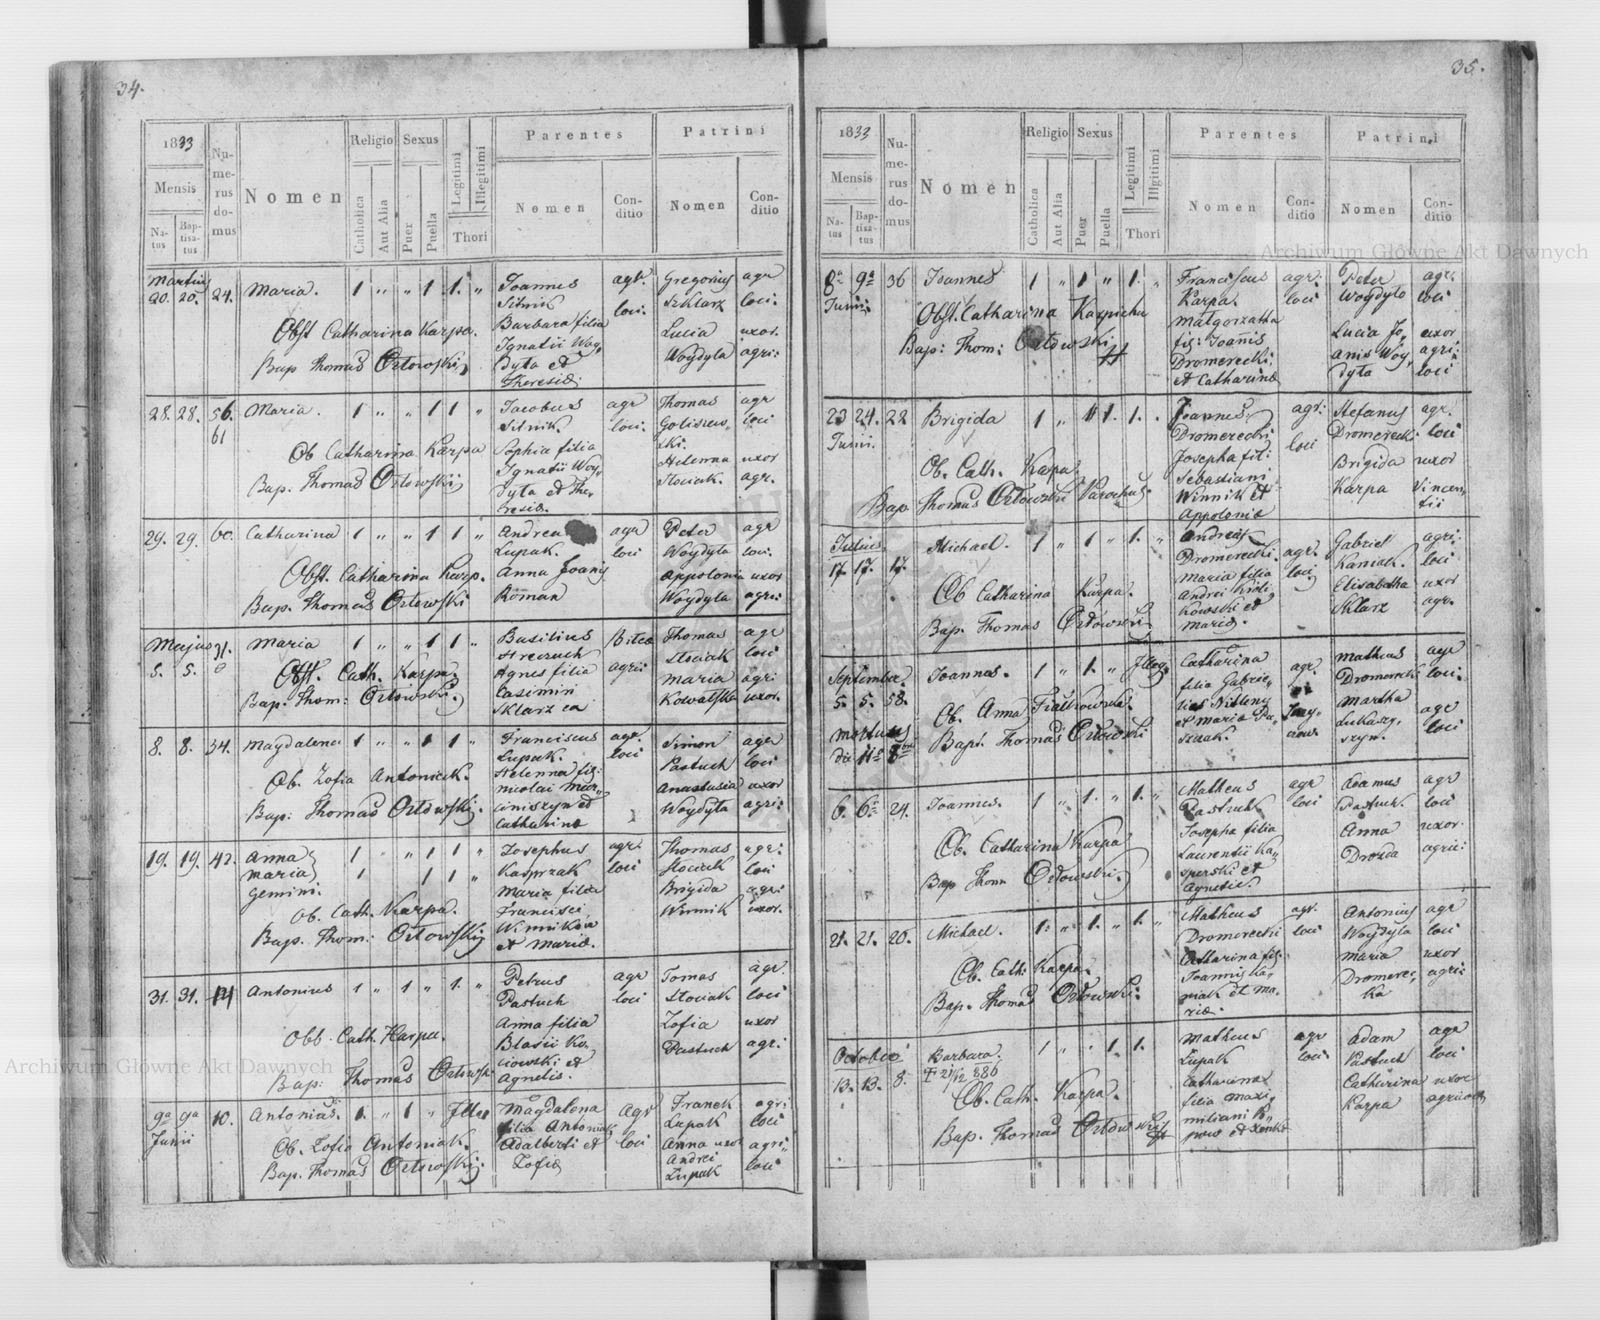 34.
1833
Mensis
Natus
Baptisatus
Numerus domus
Nomen
Religio
Catholica
Aut Alia
Sexus
Puer
Puella
Legitimi
Illegitimi
Thori
Parentes
Nomen
Conditio
Patrini
Nomen
Conditio
Martius
20. 20. 24. Maria. 1 " " 1 1. "
Obst Catharina Karpa.
Bap Thomas Ortowski
Joannes
Sitnik
Barbara filia
Ignatii Woy
dyta et
Theresiæ
agr.
loci.
Gregorius agr
Szklarz loci.
Lucia uxor.
Woydyla agri:
28. 28. 56. Maria. 1 " " 1 1 "
61
Ob Catharina Karpa
Bap. Thomas Ortowski
Jacobus agr
Sitnik. loci.
Sophia filia
Ignatii Woy
dyta et The,
resiæ.
Thomas agr
Goliszew, loci
ski.
Helenna uxor
Stociak. agr.
29. 29. 60. Catharina 1 " " 1 1 "
Obst. Catharina Karp.
Bap. Thomas Ortowski
Andrea agr
Lupak. loci
Anna Joanis
Roman
Peter agr
Woydyla loci.
Appolonia uxor
Woydyla agri:
Majus 31. Maria 1 " " 1 1 "
5. 5.
Obst. Cath. Karpa
Bap. Thom: Ortowski.
Basilius
Hreczuch
Agnes filia agri:
Casimiri
Sklarz ea
Thomas agr
Stociak loci
Maria agri
Kowalska uxor.
8. 8. 34. Magdalena 1 " " 1 1 "
Ob. Zofia Antoniak.
Bap: Thomas Ortowski.
Franciscus agr.
Lupak. loci
Helenna fil:
Nicolai Mar,
ciniszyn et
Catharinæ
Simon agr
Pastuch loci
Anastasia uxor
Woydyta agri:
19. 19. 42. Anna 1 " 1 1 "
Maria 1 1 1 "
Gemini.
Ob. Cath. Karpa.
Bap. Thom: Ortowski
Josephus agr.
Kasprzak loci
Maria filia
Francisci
Winnika
et Mariæ.
Thomas agr:
Stociak loci
Brigida agri
Winnik uxor.
31. 31. 14 Antonius 1 " 1 " 1. "
Obb. Cath. Karpa.
Bap: Thomas Ortowski
Petrus agr
Pastuch loci
Anna filia
Blasii Ko,
ciowski et
Agnetis.
Tomas agr.
Stociak loci
Zofia uxor
Pastuch agri:
9a 9a 10. Antonius. 1. " 1 " Illeg
Junii
Ob. Zofia Antoniak.
Bap. Thomas Ortowski
Magdalena agr
filia Antoniak
Adalberti et loci
Zofiæ
Franek agri:
Lupak loci
Anna uxor agri"
Andrei
Lupak loci
35.
1833
Mensis
Natus
Baptisatus
Numerus domus
Nomen
Religio
Catholica
Aut Alia
Sexus
Puer
Puella
Legitimi
Illgitimi
Thori
Parentes
Nomen
Conditio
Patrini
Nomen
Conditio
8a 9a 36 Joannes 1 " 1 " 1. "
Junii
Obst. Catharina Karpicha
Bap: Thom: Ortowski
Franciscus agr:
Karpa. loci
Małgorzatha
fil: Joañis
Dromerecki
et Catharinæ
Peter agr.
Woydyto loci
Lucia Jo, uxor
anis Woy, agri:
dyta loci
23 24. 22 Brigida 1 " " 1. 1. .
Junii.
Ob. Cath. Karpa
Bap. Thomas Ortowski Parochus.
Joannes agr:
Dromerecki loci
Josepha fil:
Sebastiani
Winnik et
Appoloniæ
Stefanus agr.
Dromerecki loci
Brigida uxor
Karpa Vincen,
tii
Julius
17. 17. 17. Michael. 1 " 1 " 1. "
Ob Catharina Karpa.
Bap. Thomas Ortowski
Andreas
Dromerecki. agr.
Maria filia loci
Andrei Kroli,
kowski et
Mariæ.
Gabriel agri:
Kaniak. loci
Elisabetha uxor
Sklarz agr.
September.
5. 5. 58. Joannes. 1 " 1. " Illeg
Ob. Anna Fiałkowska.
Bapt. Thomas Ortowski
Mortuus
die 11a 8bris
Catharina agr
filia Gabrie,
lis
et Maria Pa,
szuak.
Matheus agr
Dromerecki loci.
Martha
Lukasz, agr
szyn. loci
6. 6a 24. Joannes. 1 " 1. " 1. "
Ob. Catharina Karpa
Bap Thom Ortowski.
Matheus agr
Pastuch loci
Josepha filia
Laurentii Ka,
sperski et
Agnetis.
Adamus agr
Pastuch. loci
Anna uxor.
Drozda agric:
21. 21. 20. Michael. 1. " 1. " 1. "
Ob. Cath. Karpa.
Bap. Thomas Ortowski.
Matheus agr.
Dromerecki loci
Catharina fil:
Joannis Ka,
niak et Ma,
riæ.
Antonius agr
Woydyla loci
Maria uxor
Dromerec, agri:
ka
October
13. 13. 8. Barbara. 1 " " 1 1.
† 21/12 886
Ob. Cath. Karpa.
Bap. Thomas Ortowski
Matheus agr
Lupak loci.
Catharina
filia Maxi,
miliani
Adam agr
Pastuch loci
Catharina uxor
Karpa agricolæ
Archiwum Główne Akt Dawnych
Archiwum Główne Akt Dawnych